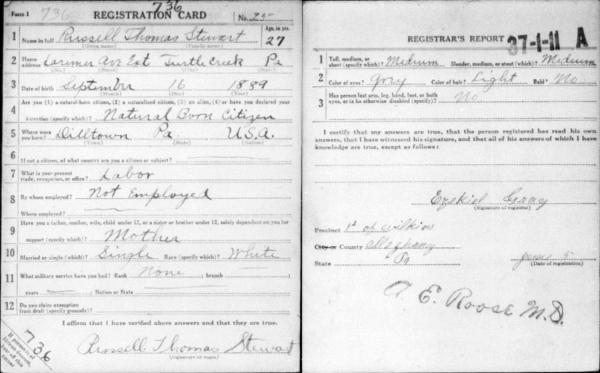 Form 1 736 REGISTRATION CARD 736 No. 735
1 Name in full Russell Thomas Stewart Age, in yrs. 27
(Given name) (Family name)
2 Home address Larimer Ave Ext Turtle Creek Pa
3 Date of birth September 16 1889
4 Are you (1) a natural-born citizen, (2) a naturalized citizen, (3) an alien, (4) or have you declared your
intention (specify which)? Natural Born Citizen
5 Where were you born? Dilltown Pa. U.S.A.
6 If not a citizen, of what country are you a citizen or subject?
7 What is your present trade, occupation, or office? Labor
8 By whom employed? Not Employed
Where employed?
9 Have you a father, mother, wife, child under 12, or a sister or brother under 12, solely dependent on you for
support (specify which)? Mother
10 Married or single (which)? Single Race (specify which)? White
11 What military service have you had? Rank None ; branch
years ; Nation or State
12 Do you claim exemption from draft (specify grounds)?
I affirm that I have verified above answers and that they are true.
736
Russell Thomas Stewart
(Signature or mark)
REGISTRAR'S REPORT 37-1-11 A
1 Tall, medium, or short (specify which)? Medium Slender, medium, or stout (which)? Medium
2 Color of eyes? Gray Color of hair? Light Bald? No
3 Has person lost arm, leg, hand, foot, or both eyes, or is he otherwise disabled (specify)? No
I certify that my answers are true, that the person registered has read his own
answers, that I have witnessed his signature, and that all of his answers of which I have
knowledge are true, except as follows:
Ezekiel
(Signature of registrar)
Precinct 1st of Wilkins
City or County Allegheny
State Pa June 5
(Date of registration)
A E. Roose M.D.